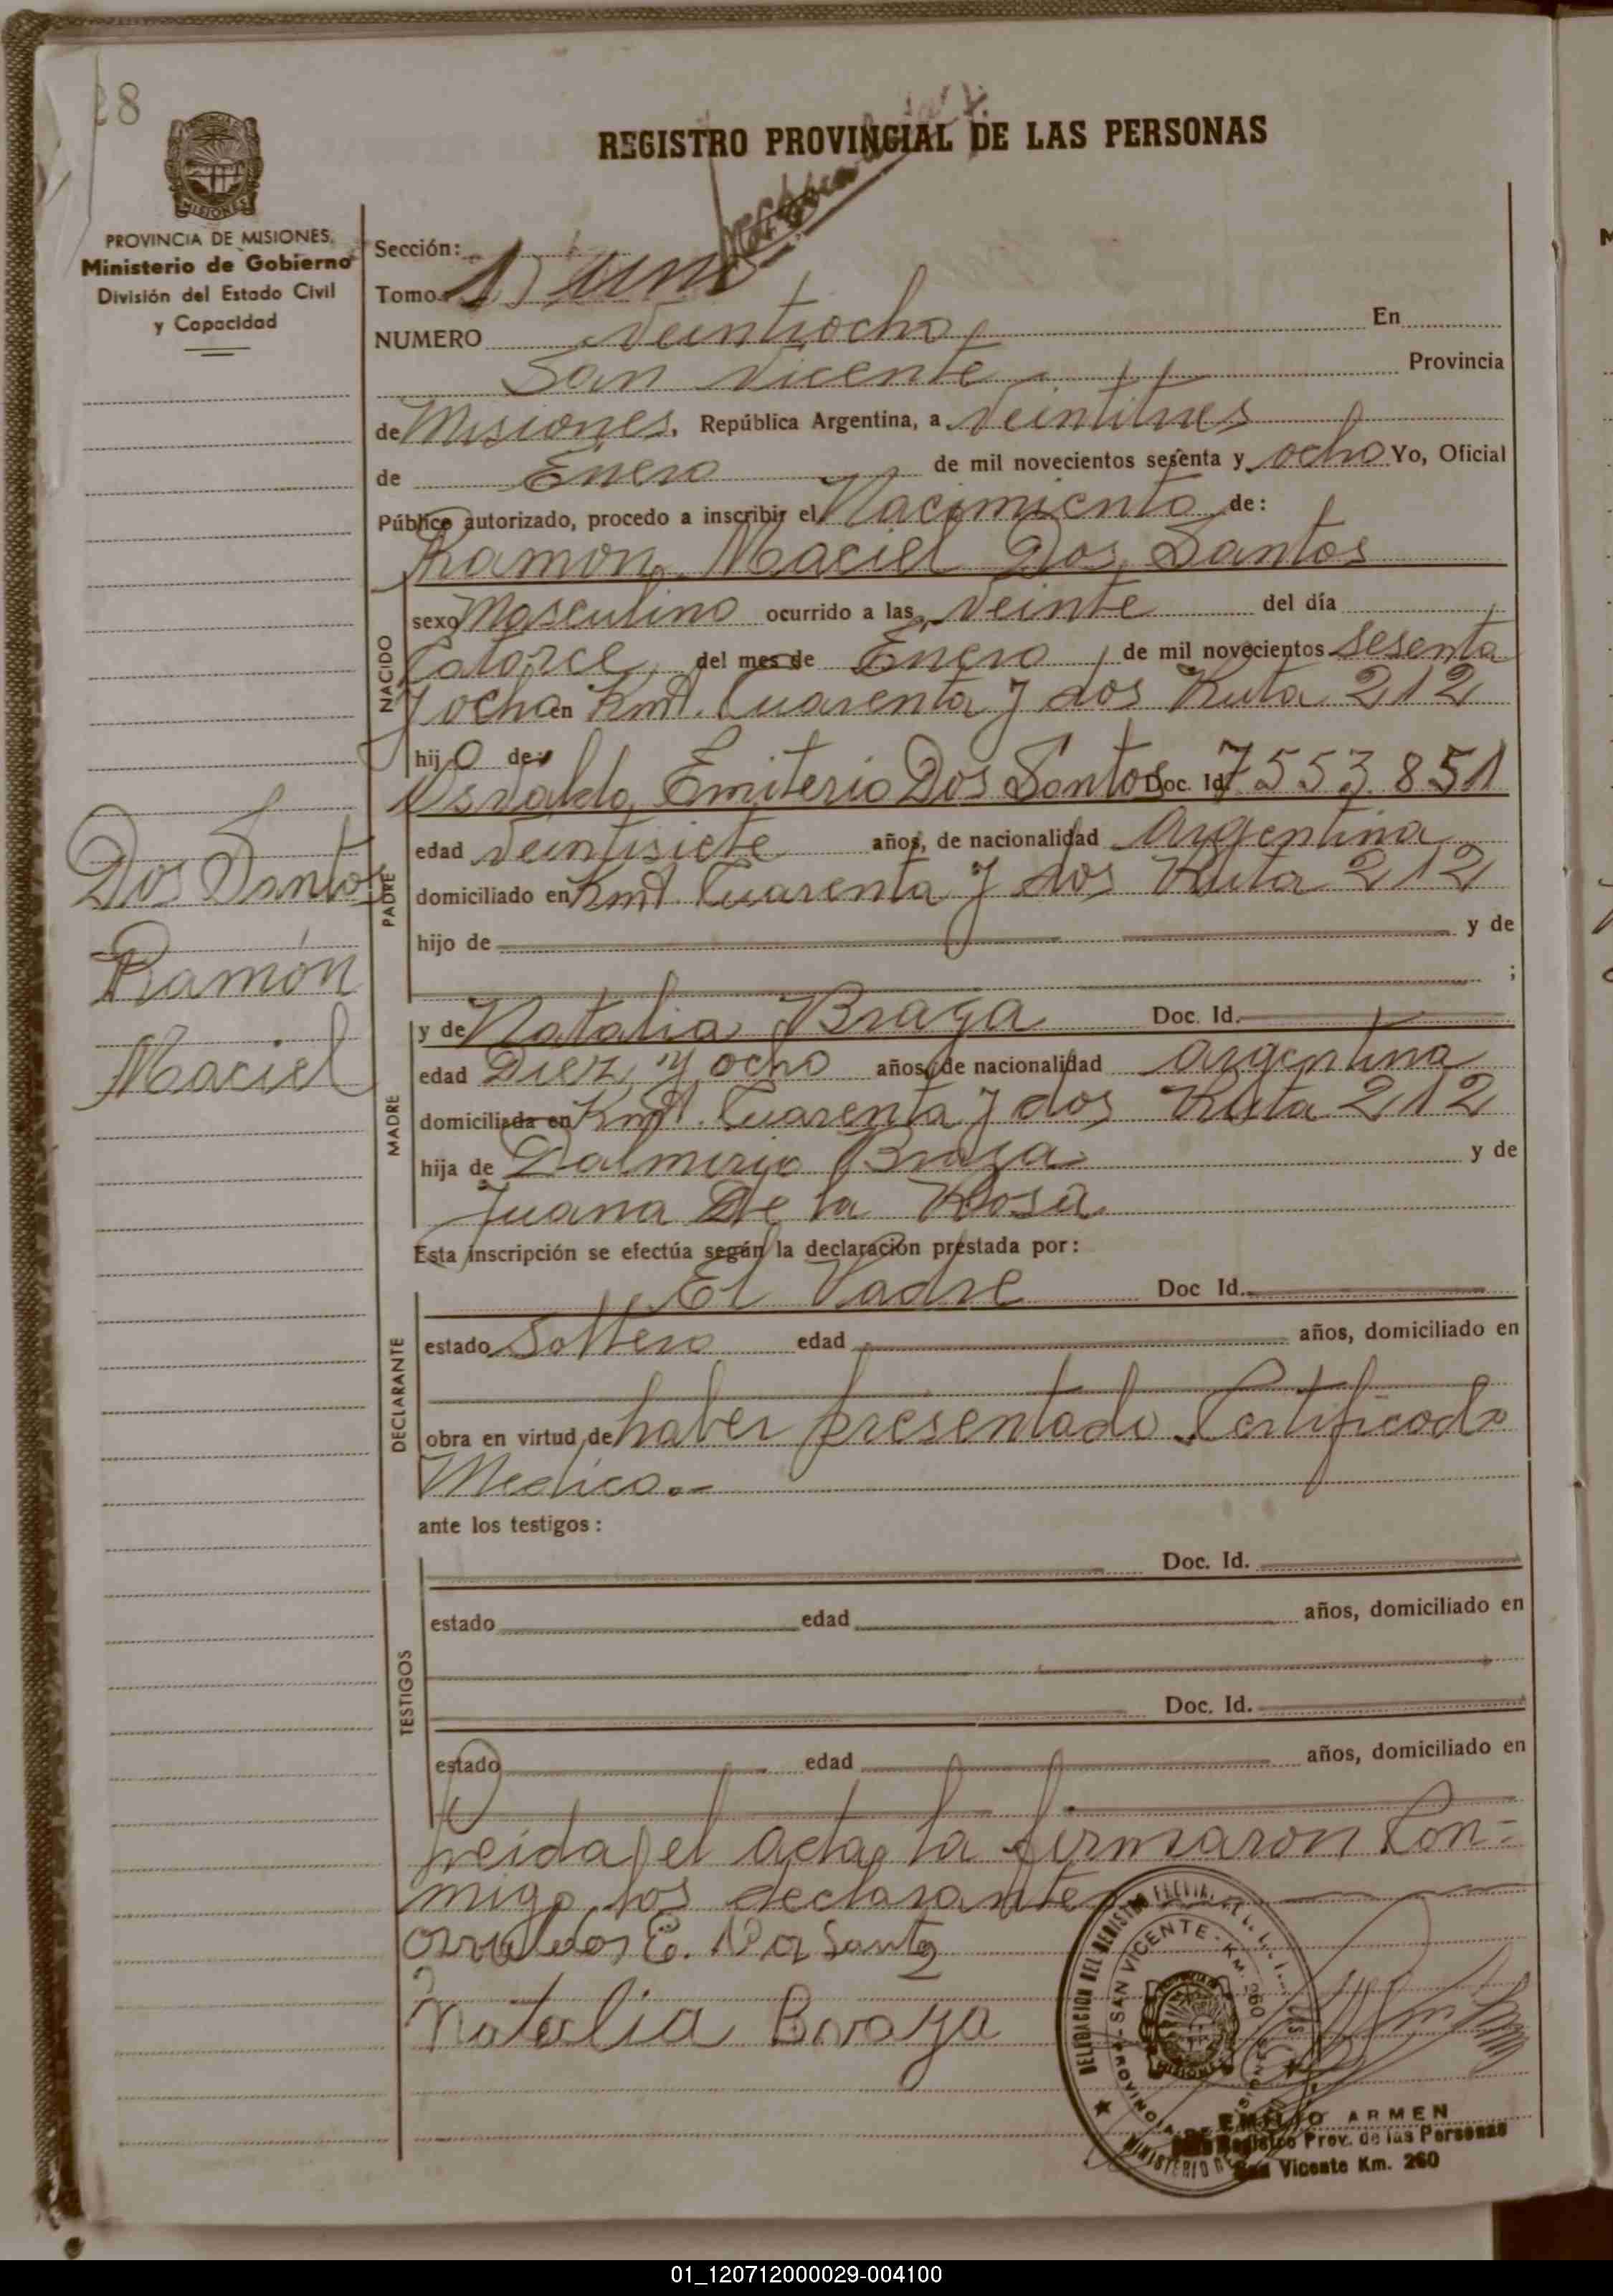 28
REGISTRO PROVINCIAL DE LAS PERSONAS
PROVINCIA DE MISIONES
Ministerio de Gobierno
División del Estado Civil
y Capacidad
Sección:
Tomo 1) uno
NUMERO Veintiocho En
San Vicente Provincia
de Misiones, República Argentina, a Veintitres
de Enero de mil novecientos sesenta y ocho Yo, Oficial
Público autorizado, procedo a inscribir el Nacimiento de:
Ramon Maciel Dos Santos
NACIDO
sexo Masculino ocurrido a las veinte del día
Catorce del mes de Enero de mil novecientos sesenta
y ocho en Kmt. Cuarenta y dos Ruta 212
hijo de:
Osvaldo Emiterio Dos Santos Doc. Id. 7553851
PADRE
edad veintisiete años, de nacionalidad Argentina
domiciliado en Kmt. Cuarenta y dos Ruta 212
hijo de y de
;
Dos Santos
Ramón
Maciel
MADRE
y de Natalia Braga Doc. Id.
edad Diez y ocho años, de nacionalidad Argentina
domiciliada en Kmt. Cuarenta y dos Ruta 212
hija de Dalmirio Braga y de
Juana De la Rosa
Esta inscripción se efectúa según la declaración prestada por:
DECLARANTE
El Padre Doc Id.
estado Soltero edad años, domiciliado en
obra en virtud de haber presentado Certificado
Medico.-
ante los testigos:
TESTIGOS
Doc. Id.
estado edad años, domiciliado en
Doc. Id.
estado edad años, domiciliado en
Leida el acta la firmaron Con-
migo los declarantes
E. Dos Santos
Natalia Braga
DELEGACION DEL REGISTRO
SAN VICENTE - KM. 260
MISIONES
MINISTERIO DE
EMILIO ARMEN
Registro Prov. de las Personas
San Vicente Km. 260
01_120712000029-004100